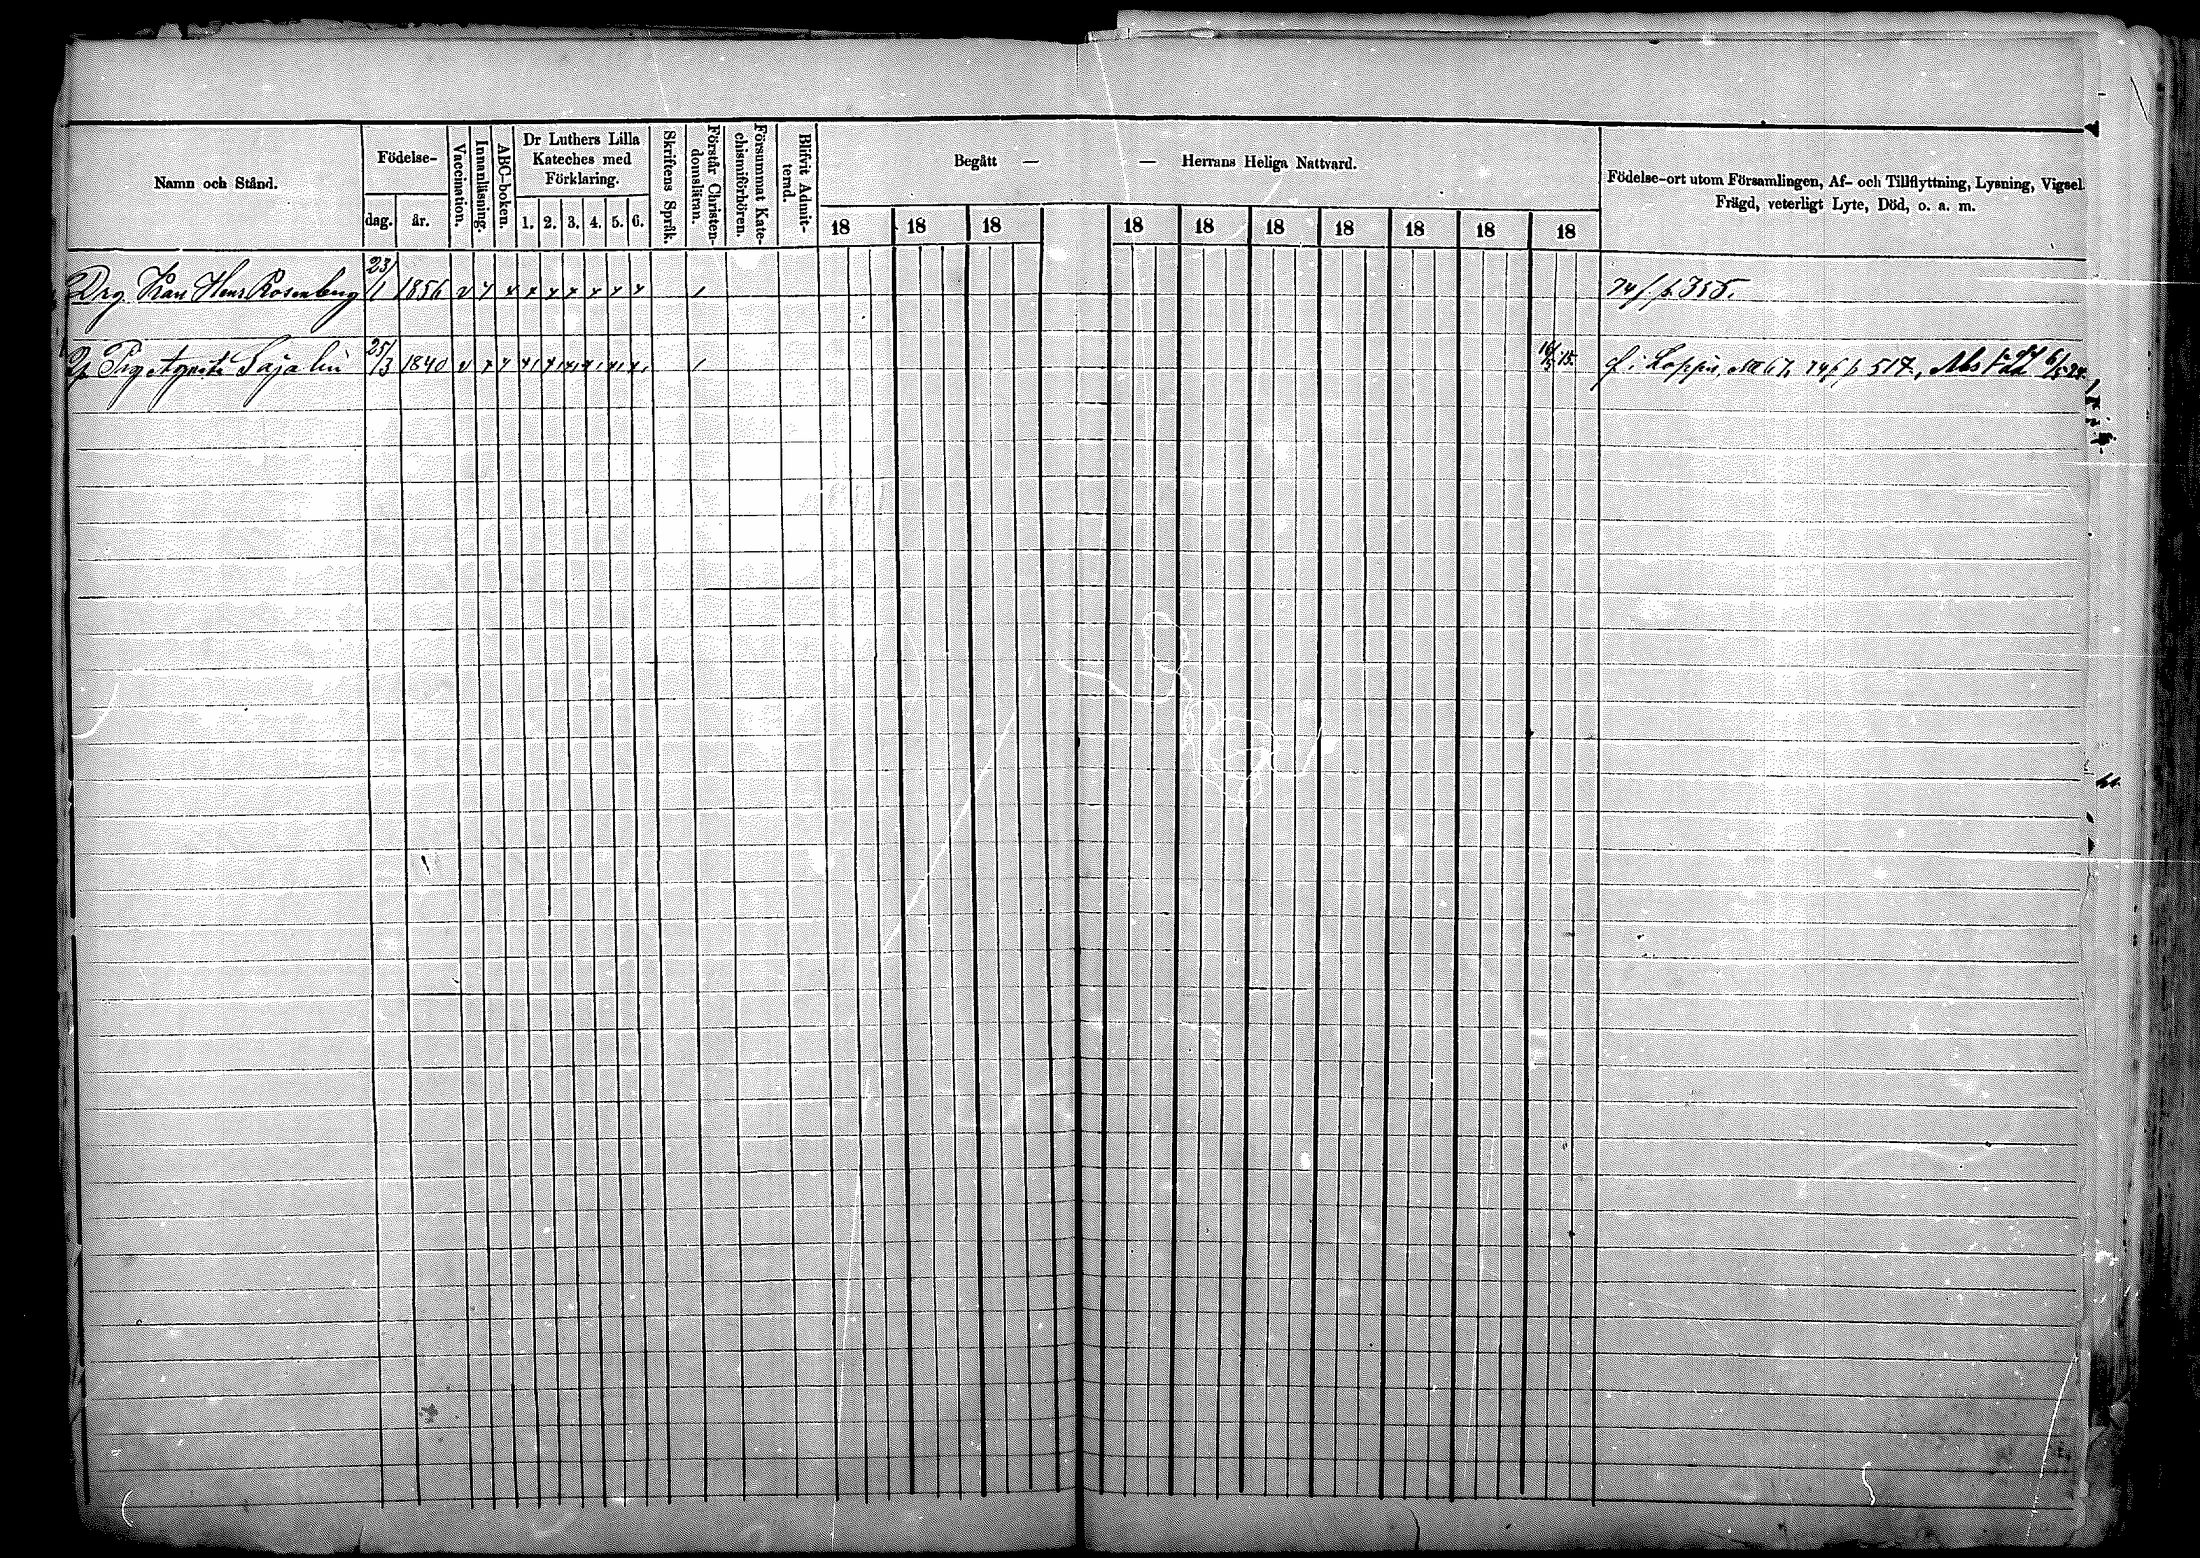 Namn och Stånd.
Födelse-
dag.
år.
Vaccination.
Innanläsning.
ABC-boken.
Dr Luthers Lilla
Kateches med
Förklaring.
1. 2. 3. 4. 5. 6.
Skriftens Språk.
Förstår Christen-
domsläran.
Försummat Kate-
chismiförhören.
Blifvit Admit-
terad.
Begått — — Herrans Heliga Nattvard.
18 18 18 18 18 18 18 18 18 18
Födelse-ort utom Församlingen, Af- och Tillflyttning, Lysning, Vigsel
Frägd, veterligt Lyte, Död, o. a. m.
Drg Karl Henr Rosenberg 23/1 1856 74/p. 355.
Pig Agneta Sajalin 25/3 1840 f. i Loppis, 74/p 517,